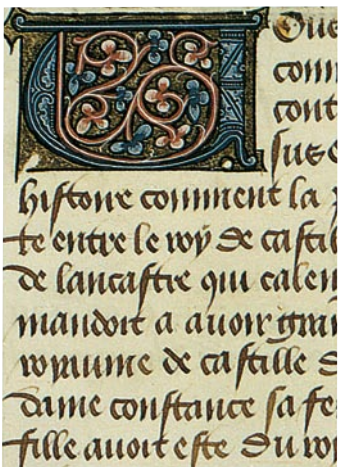 Vous
com
cont
sus e
histoire comment la
te entre le roy de castil
de lancastre qui calen
mandoit a avoir gran
royaume de castille d
dame constance sa fe
fille avoit este du roy